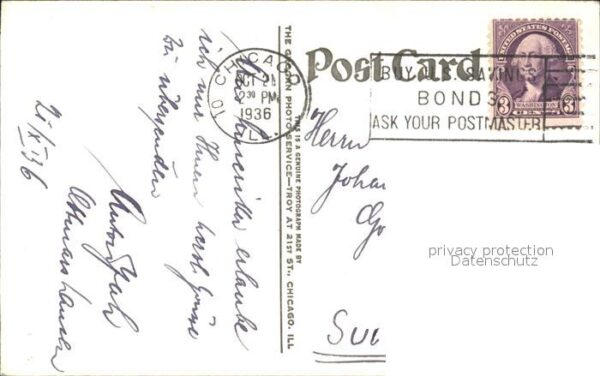 Post Card
CHICAGO
10
OCT 21
2 30 PM
1936
BUY U.S. SAVINGS
BONDS
ASK YOUR POSTMASTER
UNITED STATES POSTAGE
3 WASHINGTON 3
THIS IS A GENUINE PHOTOGRAPH MADE BY
PHOTO SERVICE—TROY AT 21ST ST., CHICAGO, ILL.
Aus Amerika erlaube
ich mir Ihnen herzl. Grüsse
zu übersenden
21/X 36
Herrn
Johan
privacy protection
Datenschutz